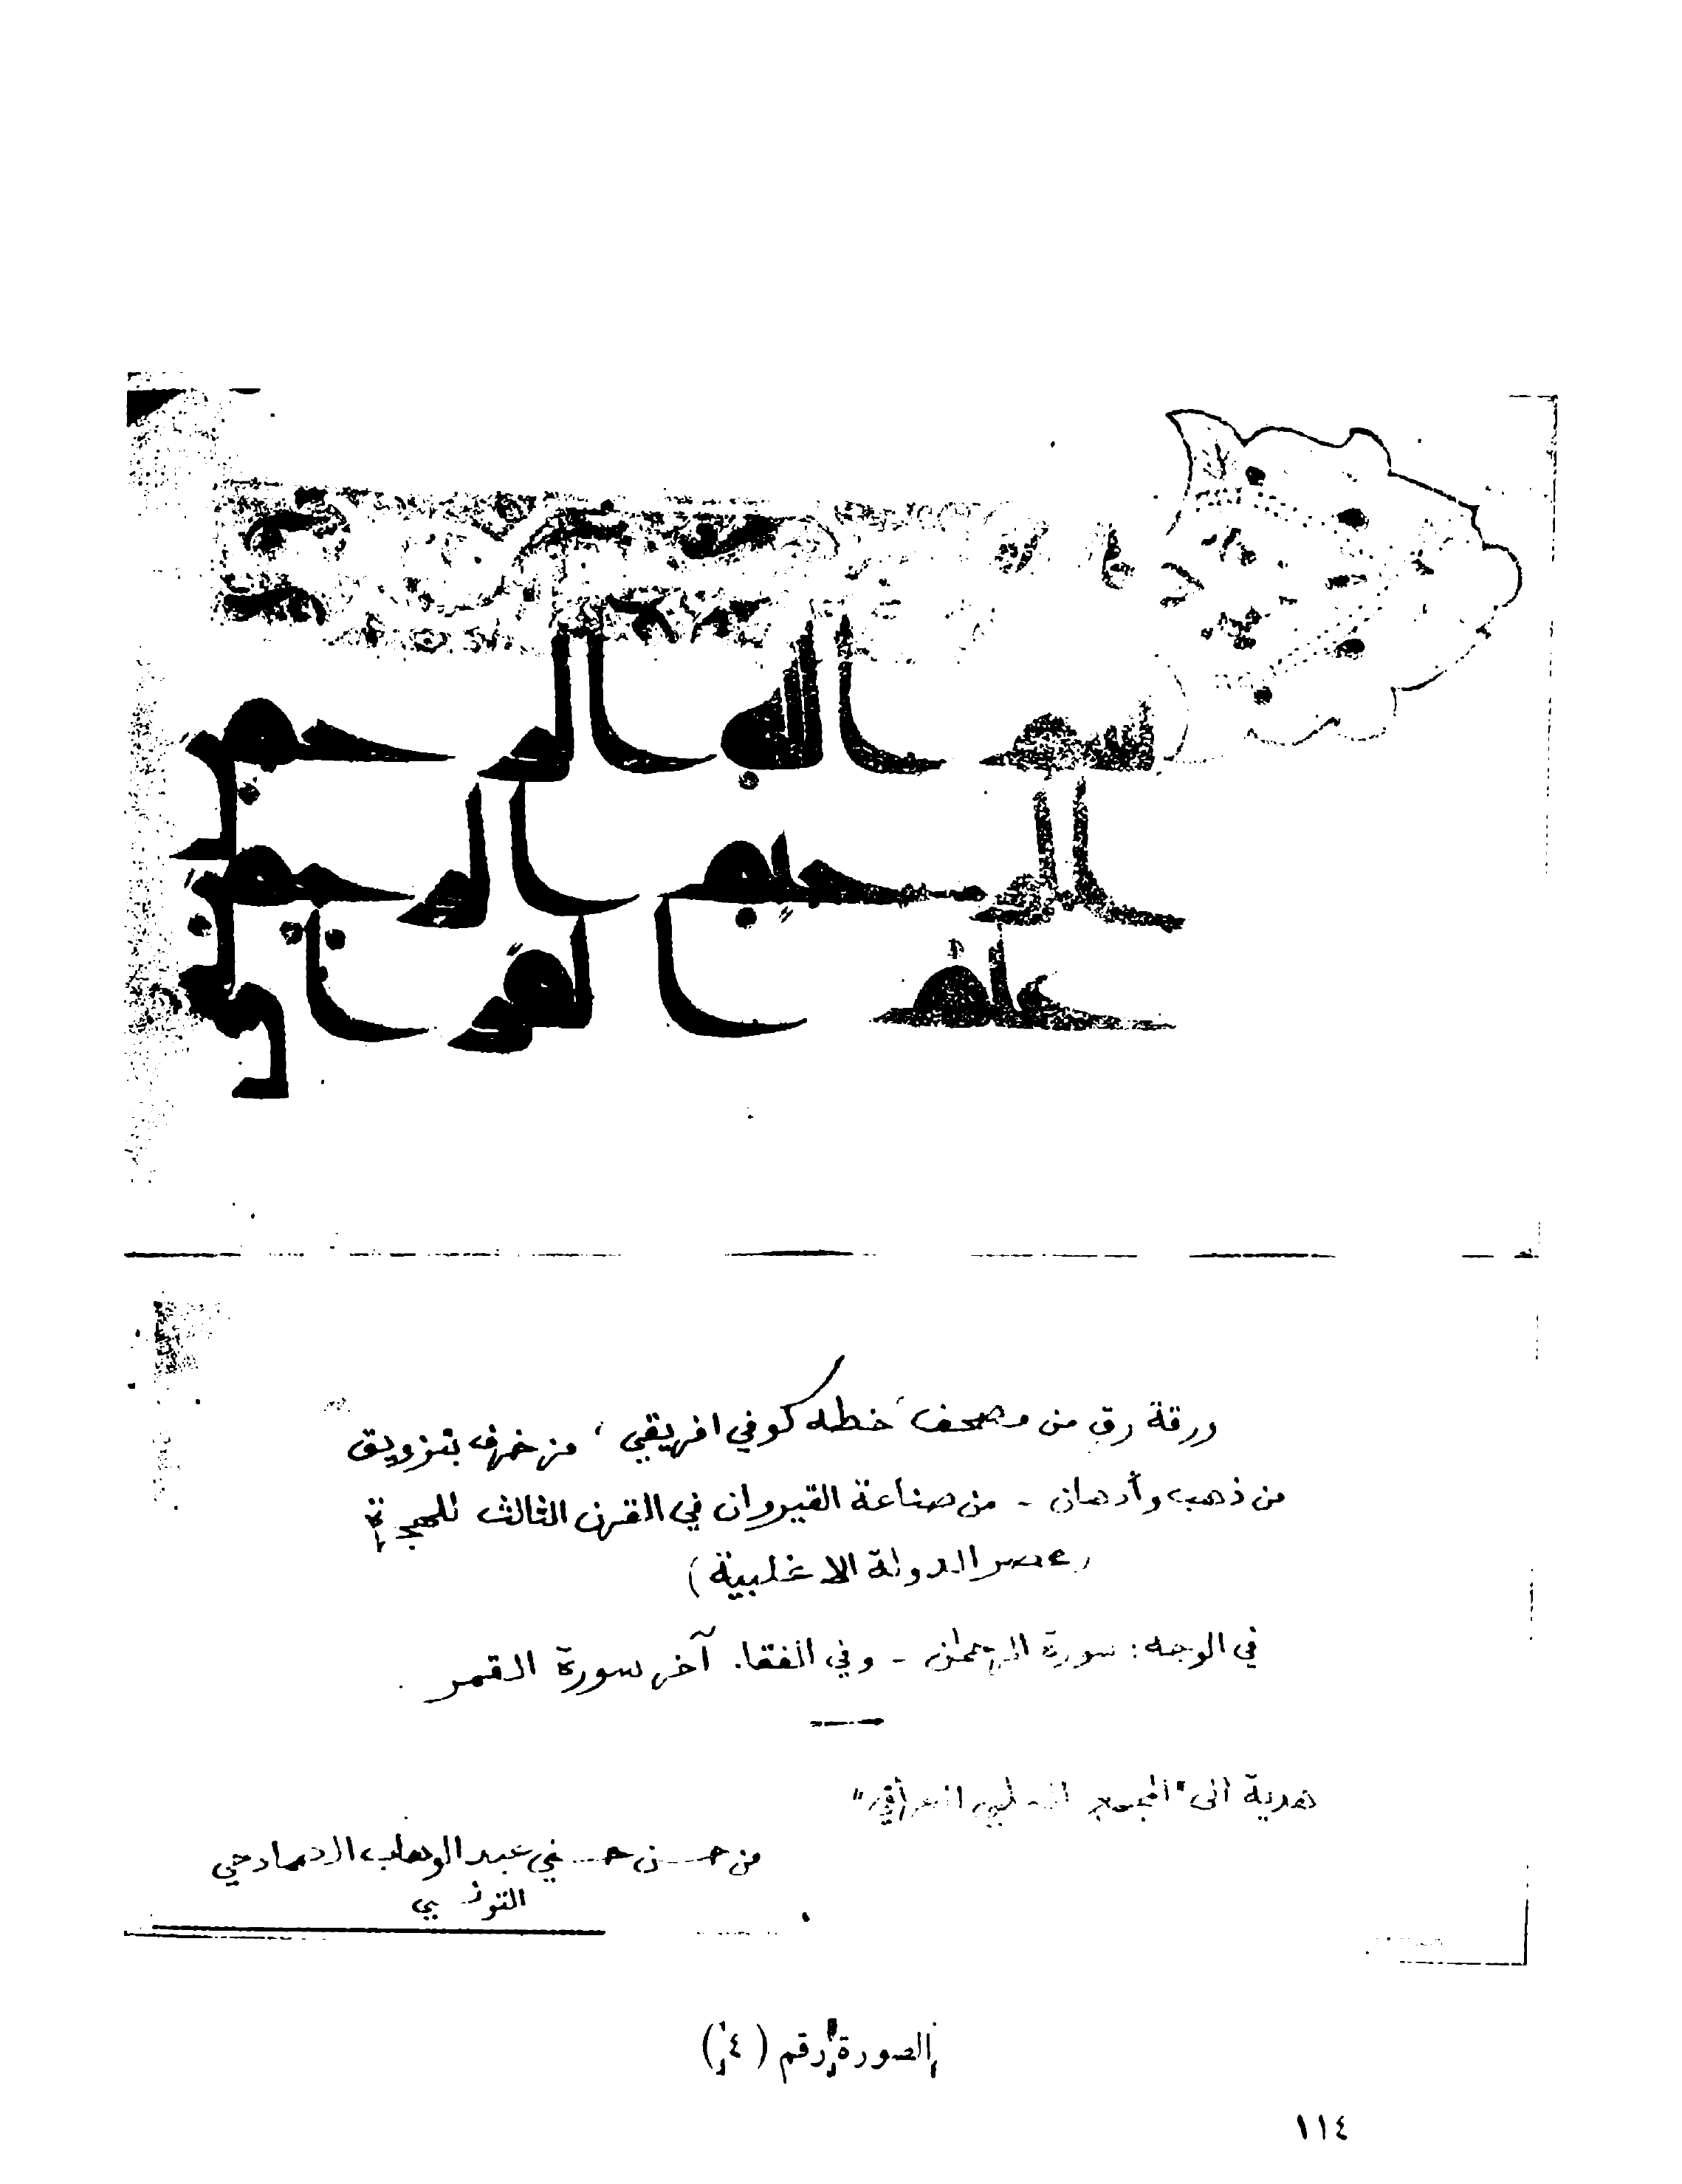 بسم الله الرحمن
الرحيم الرحمن
علم القران خلق
ورقة رق من مصحف، خطه كوفي افريقي، مزخرف بتزويق
من ذهب وأدهان - من صناعة القيروان في القرن الثالث للهجرة
(عصر الدولة الاغلبية)
في الوجه: سورة الرحمان - وفي القفا. آخر سورة القمر
هدية الى "المجمع العلمي العراقي"
من حسن حسني عبد الوهاب الصمادحي
التونسي
الصورة رقم (٤)
١١٤